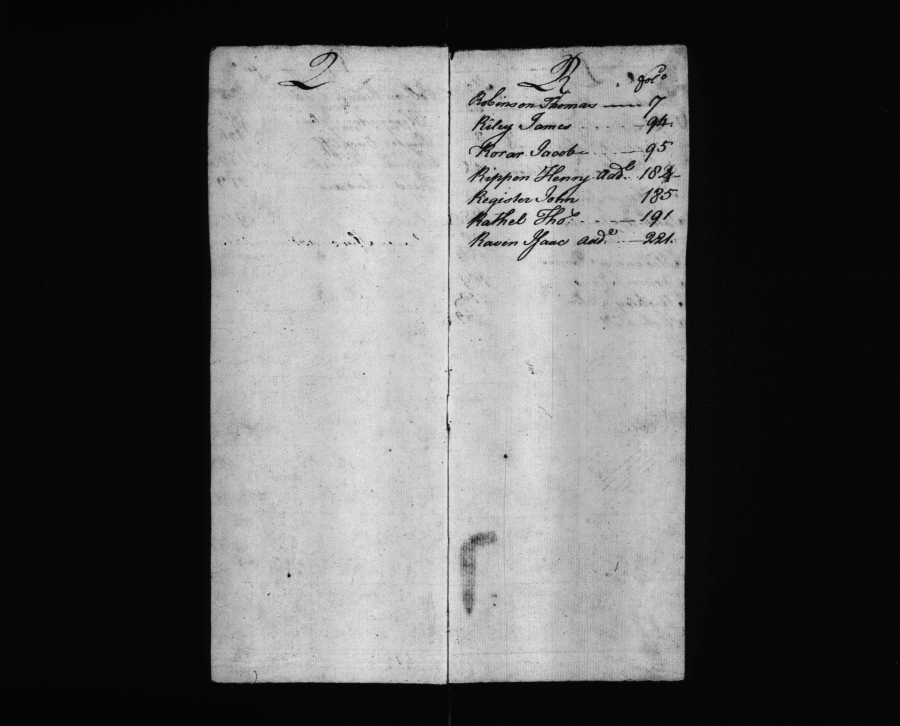 Q
R
fol.o
Robinson Thomas 7
Riley James 94
Rorar Jacob 95
Rippon Henry 184
Register John 185
Rathel Tho.s 191
Raven Isaac 221